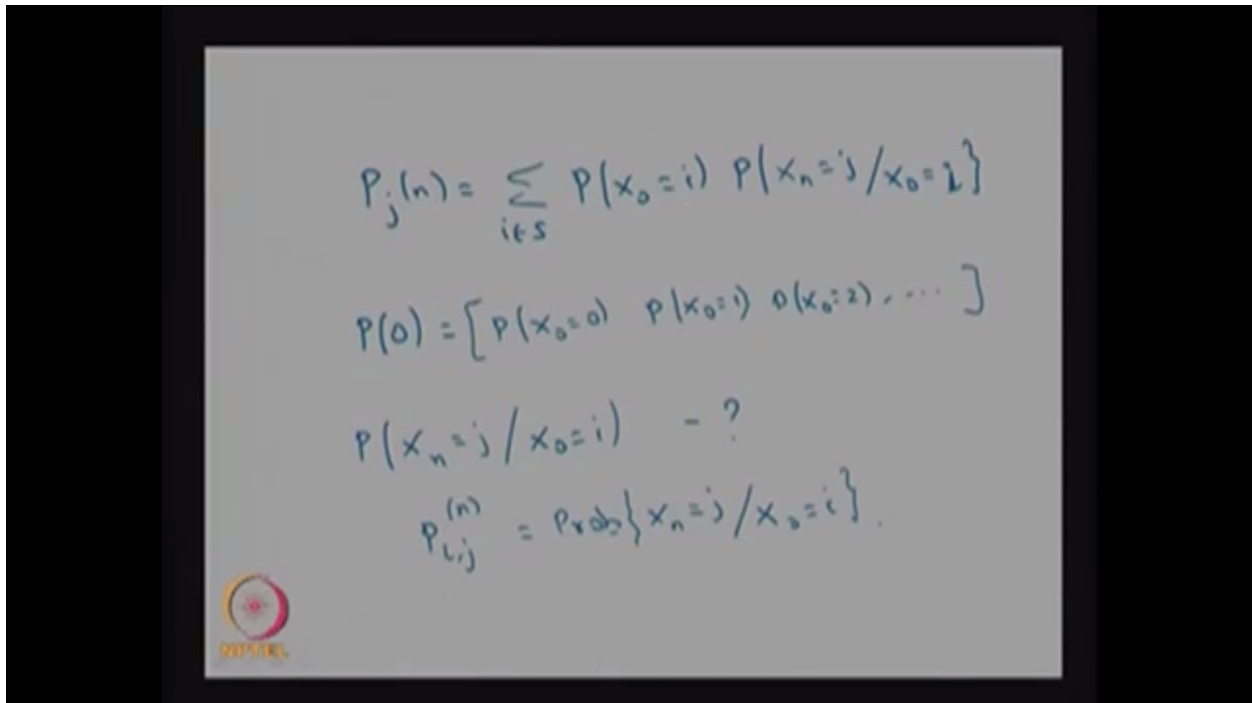 P_j(n) = Σ_{i∈S} P(X_0 = i) P(X_n = j / X_0 = i}
P(0) = [P(X_0 = 0) P(X_0 = 1) P(X_0 = 2), .... ]
P(X_n = j / X_0 = i) - ?
P_{i,j}^{(n)} = Prob{X_n = j / X_0 = i}.
NPTEL